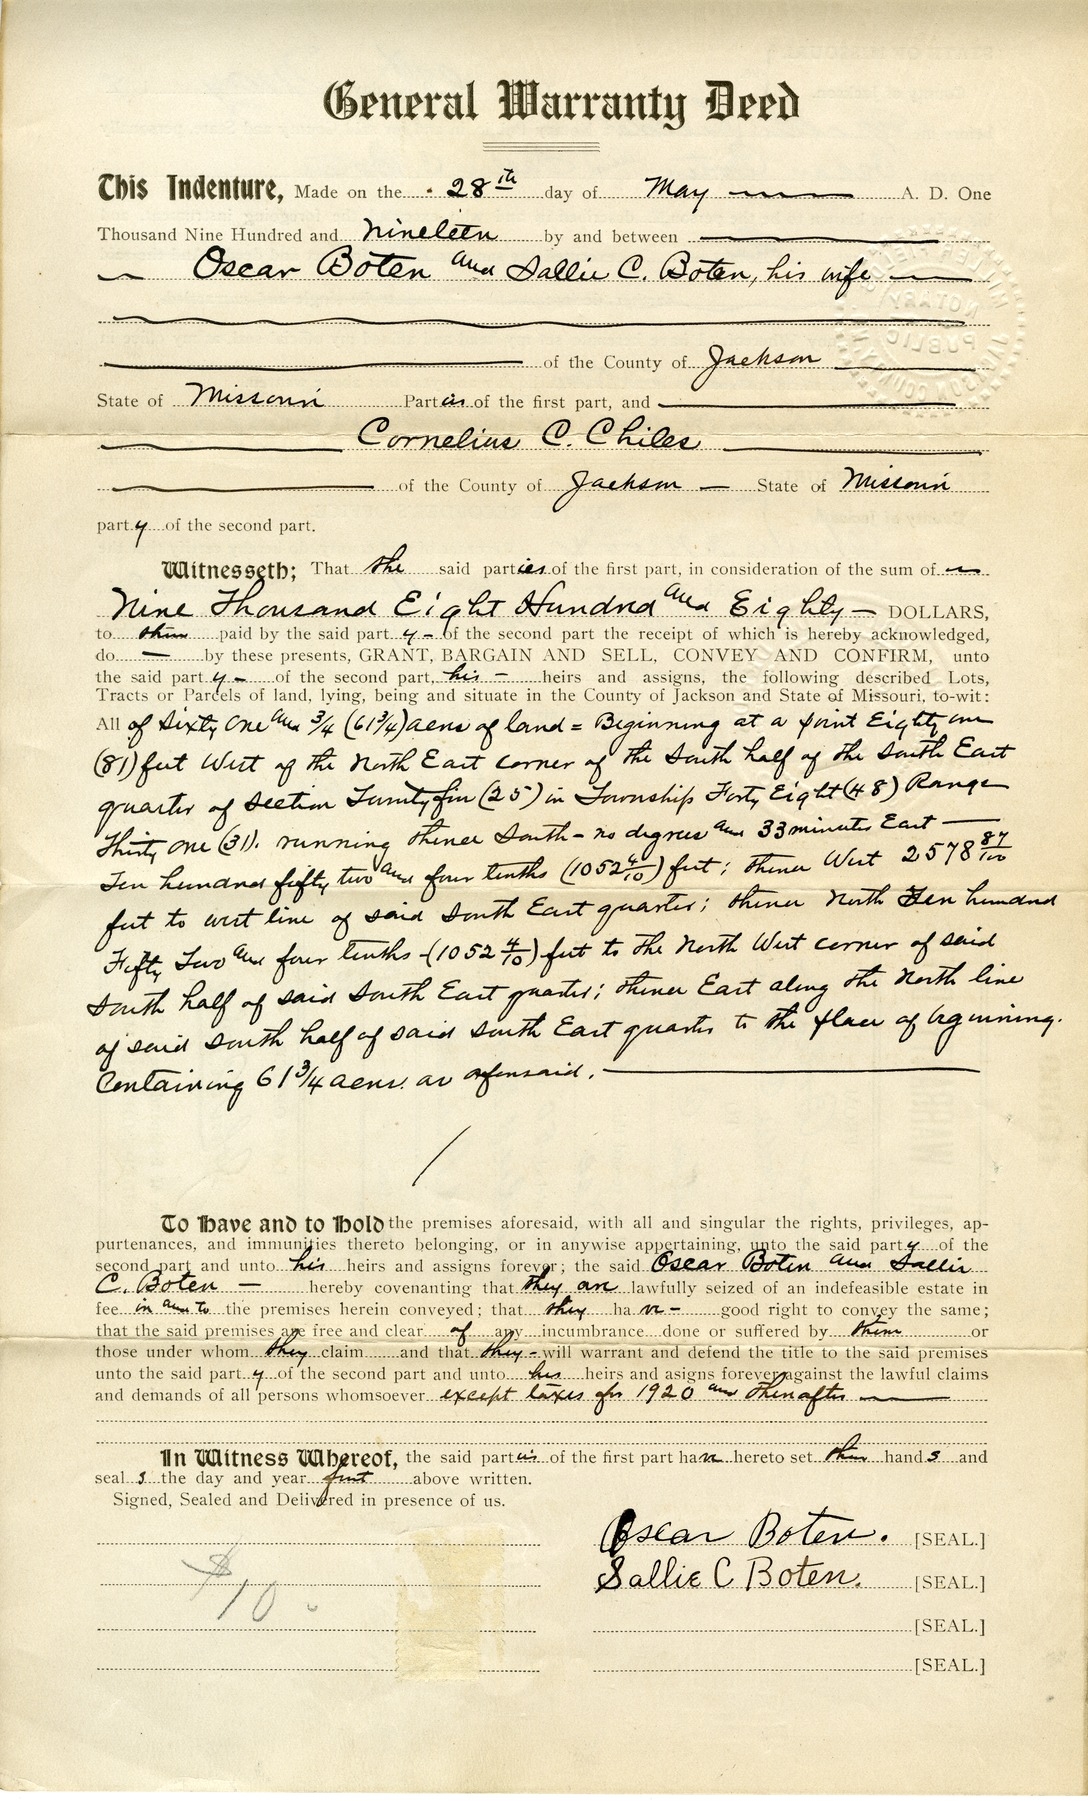 General Warranty Deed
This Indenture, Made on the 28th day of May A. D. One
Thousand Nine Hundred and Nineteen by and between
Oscar Boten and Sallie C. Boten, his wife
of the County of Jackson
State of Missouri Parties of the first part, and
Cornelius C. Chiles
of the County of Jackson — State of Missouri
party of the second part.
Witnesseth; That the said parties of the first part, in consideration of the sum of
Nine Thousand Eight Hundred and Eighty — DOLLARS,
to them paid by the said party of the second part the receipt of which is hereby acknowledged,
do — by these presents, GRANT, BARGAIN AND SELL, CONVEY AND CONFIRM, unto
the said party of the second part, his — heirs and assigns, the following described Lots,
Tracts or Parcels of land, lying, being and situate in the County of Jackson and State of Missouri, to-wit:
All of Sixty One and 3/4 (61 3/4) acres of land = Beginning at a point Eighty one
(81) feet West of the North East corner of the South half of the South East
quarter of section Twenty five (25) in Township Forty Eight (48) Range
Thirty One (31). running thence South - no degrees and 33 minutes East —
Ten hundred fifty two and four tenths (1052 4/10) feet; thence West 2578 87/100
feet to west line of said South East quarter; thence North Ten hundred
Fifty Two and four tenths - (1052 4/10) feet to the North West corner of said
South half of said South East quarter; thence East along the North line
of said south half of said south East quarter to the place of beginning.
Containing 61 3/4 acres. as aforesaid.
To Have and to Hold the premises aforesaid, with all and singular the rights, privileges, ap-
purtenances, and immunities thereto belonging, or in anywise appertaining, unto the said party of the
second part and unto his heirs and assigns forever; the said Oscar Boten and Sallie
C. Boten — hereby covenanting that they are lawfully seized of an indefeasible estate in
fee in and to the premises herein conveyed; that they have - good right to convey the same;
that the said premises are free and clear of any incumbrance done or suffered by them or
those under whom they claim and that they - will warrant and defend the title to the said premises
unto the said party of the second part and unto his heirs and asigns forever against the lawful claims
and demands of all persons whomsoever except taxes for 1920 and thereafter
In Witness Whereof, the said parties of the first part have hereto set their hands and
seals the day and year first above written.
Signed, Sealed and Delivered in presence of us.
Oscar Boten. [SEAL.]
Sallie C Boten. [SEAL.]
$10.
[SEAL.]
[SEAL.]